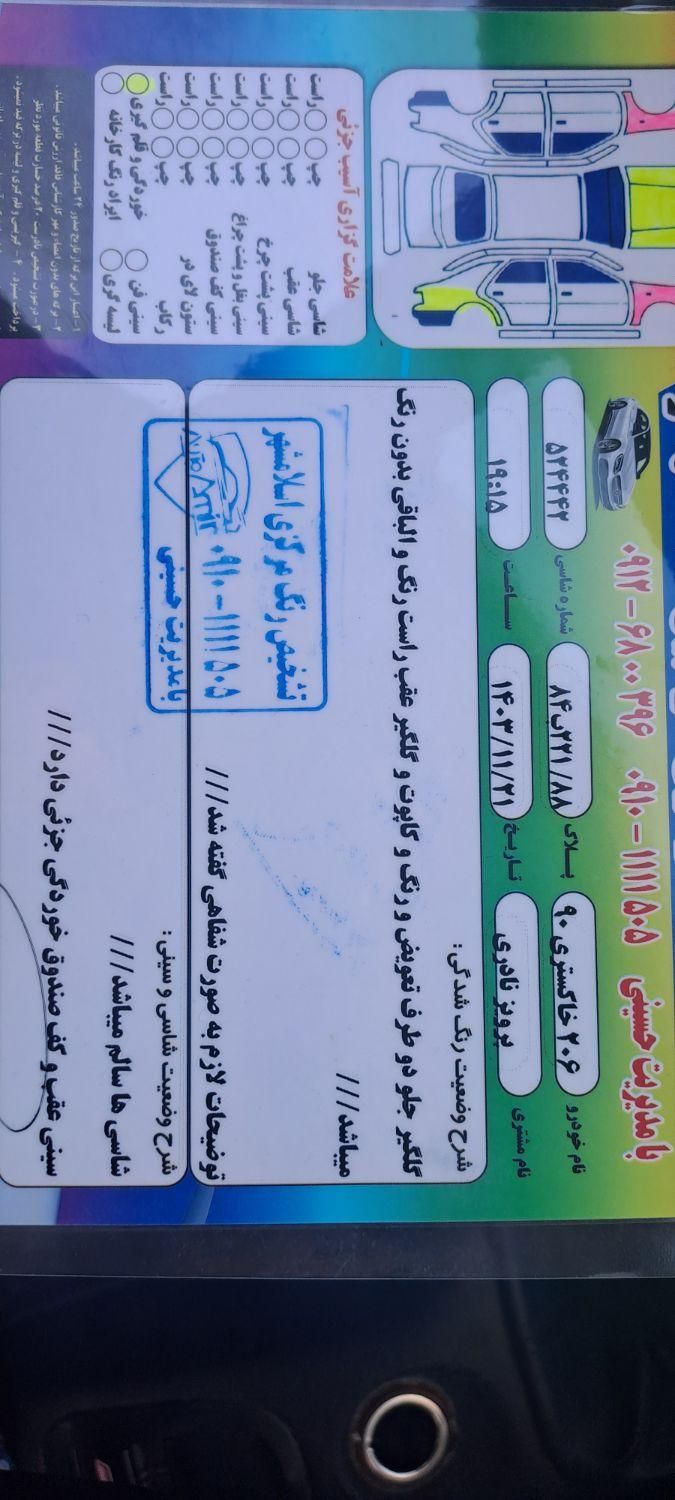 با مدیریت حسینی ۰۹۱۰-۱۱۱۱۵۰۵ ۰۹۱۲-۶۸۰۰۳۹۶
نام خودرو ۲۰۶ خاکستری ۹۰ پلاک ۸۸/ ۲۲۱ب۸۴ شماره شاسی ۵۲۴۴۴۲
نام مشتری پرویز نادری تاریخ ۱۴۰۳/۱۱/۲۱ ساعت ۱۹:۱۵
شرح وضعیت رنگ شدگی:
گلگیر جلو دو طرف تعویض و رنگ و کاپوت و گلگیر عقب راست رنگ و الباقی بدون رنگ
میباشد///
توضیحات لازم به صورت شفاهی گفته شد///
تشخیص رنگ مرکزی اسلامشهر
۰۹۱۰-۱۱۱۱۵۰۵
با مدیریت حسینی
AUTO Amir
شرح وضعیت شاسی و سینی:
شاسی ها سالم میباشد///
سینی عقب و کف صندوق خوردگی جزئی دارد///
علامت گزاری آسیب جزئی
شاسی جلو چپ راست
شاسی عقب چپ راست
سینی پشت چرخ چپ راست
سینی بغل و پشت چراغ چپ راست
سینی کف صندوق چپ راست
ستون لای در چپ راست
رکاب چپ راست
سینی فن خوردگی و قلم گیری
لیسه گری ایراد رنگ کارخانه
۱- اعتبار این برگه از تاریخ صدور ۲۴ ساعت میباشد.